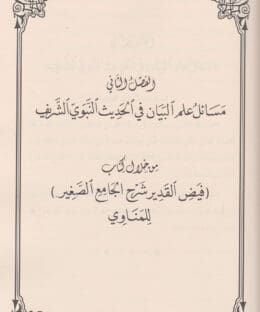 الفصل الثاني
مسائل علم البيان في الحديث النبوي الشريف
من خلال كتاب
(فيض القدير شرح الجامع الصغير)
للمناوي